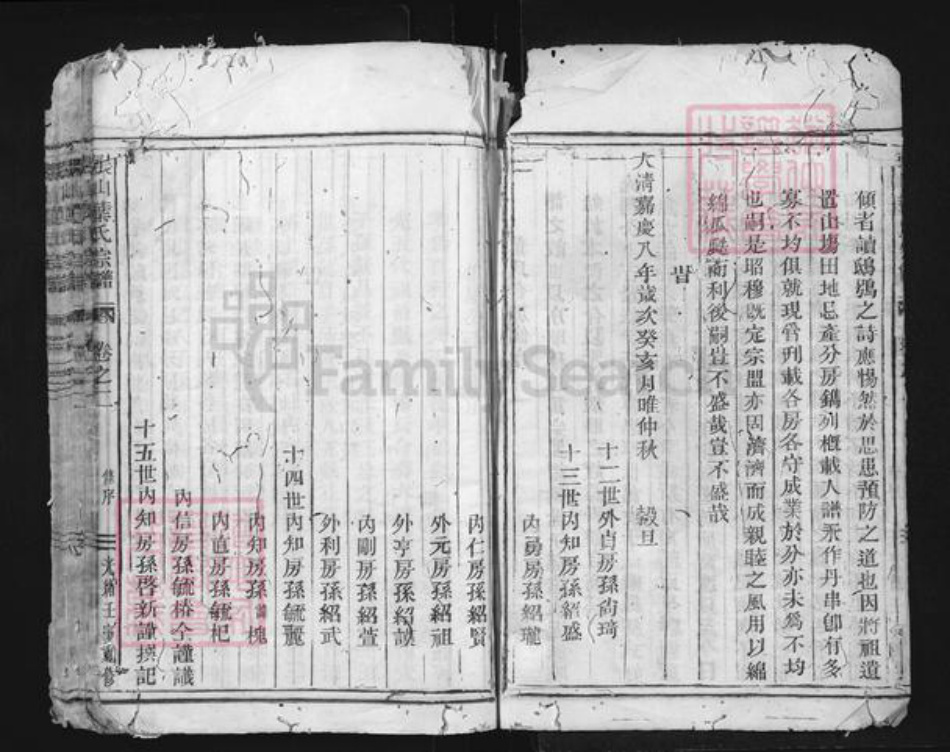 傾者讀鴟鴞之詩應惕然於思患預防之道也因將祖遺
置山塲田地忌產分房鐫列概載入譜永作丹串卽有多
寡不均俱就現管刊載各房各守成業於分亦未爲不均
也嗣是昭穆既定宗盟亦固濟濟而成親睦之風用以綿
綿瓜瓞而利後嗣豈不盛哉豈不盛哉
旹
大清嘉慶八年歲次癸亥月唯仲秋 穀旦
十二世外貞房孫尙琦
十三世內知房孫紹盛
內勇房孫紹瓏
內仁房孫紹賢
外元房孫紹祖
外亨房孫紹謨
內剛房孫紹萱
外利房孫紹武
十四世內知房孫毓麗
內知房孫毓槐
內直房孫毓杞
內信房孫毓椿仝謹議
十五世內知房孫啓新謹撰記
葉氏宗譜 卷之二 修序 光緒壬寅重修
FamilySearch